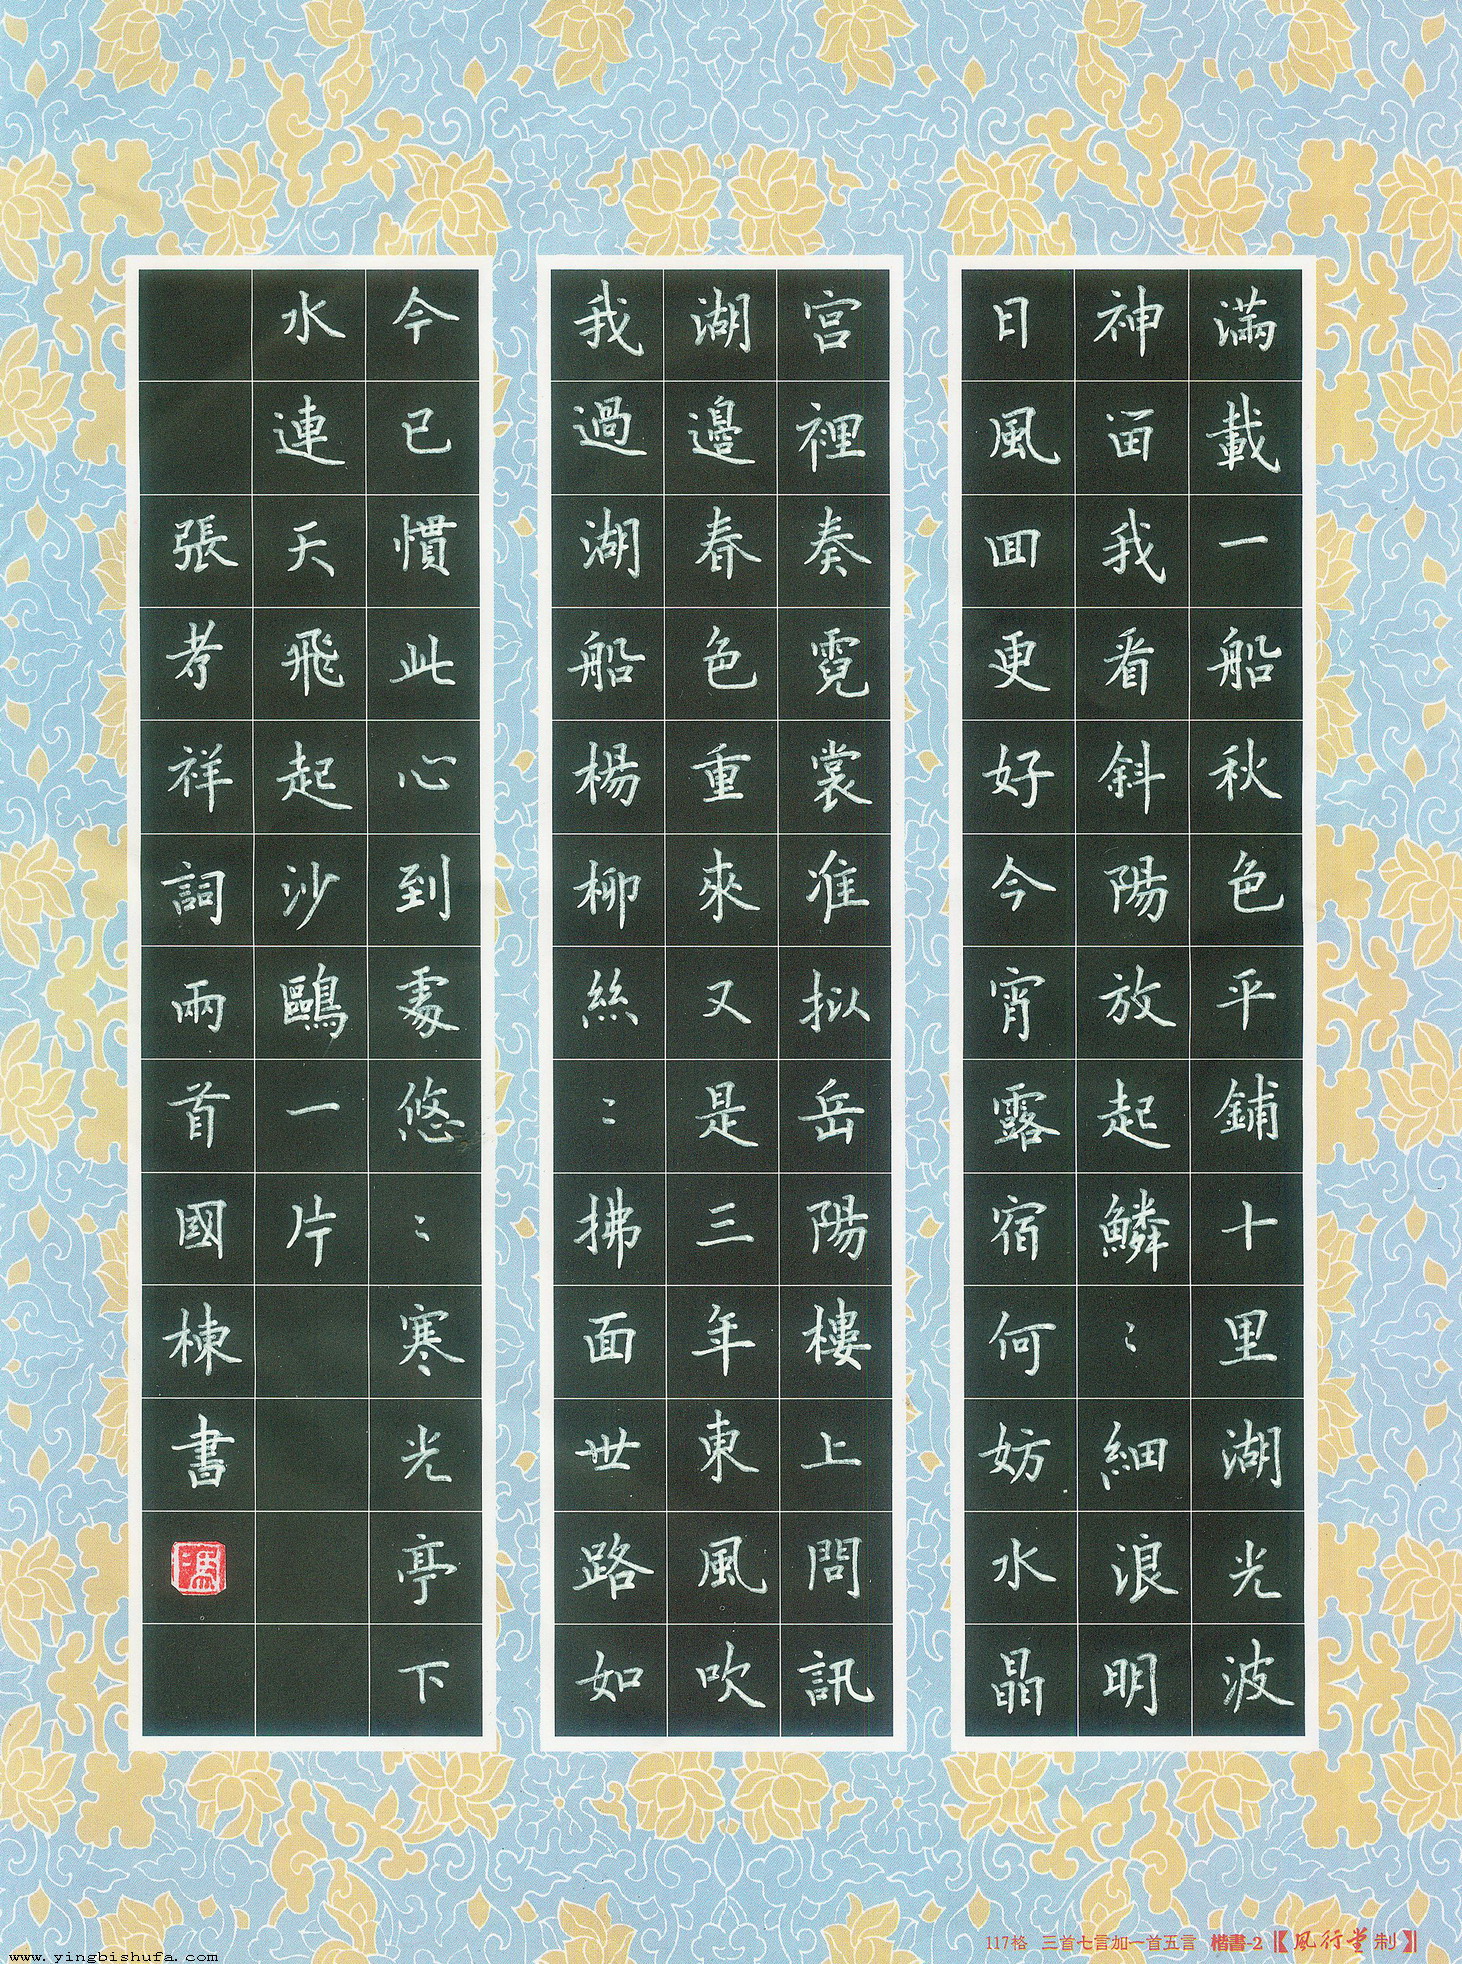 滿載一船秋色平鋪十里湖光波
神畱我看斜陽放起鱗〻細浪明
日風囬更好今宵露宿何妨水晶
宮裡奏霓裳准拟岳陽樓上問訊
湖邊春色重來又是三年東風吹
我過湖船楊柳絲〻拂面世路如
今已慣此心到處悠〻寒光亭下
水連天飛起沙鷗一片
張孝祥詞兩首國棟書
馮
117格 三首七言加一首五言 楷書-2【風行堂制】
www.yingbishufa.com